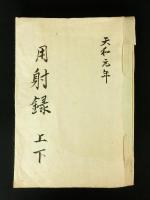 天和元年
用射録 上下